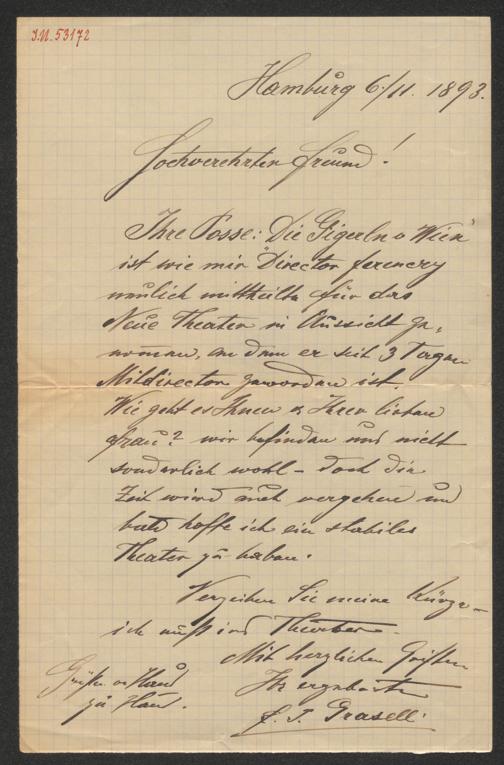 I.N. 53172
Hamburg 6/11. 1893.
Hochverehrter Freund!
Ihre Posse: "Die Gigerln v Wien"
ist wie mir Director Ferenczy
neulich mittheilte für das
Neue Theater in Aussicht ge,
nommen, an dem er seit 3 Tagen
Mitdirector geworden ist.
Wie geht es Ihnen u Ihrer lieben
Frau? wir befinden uns nicht
sonderlich wohl – doch die
Zeit wird auch vergehen und
hoffe ich ein stabiles
Theater zu haben.
Verzeihen Sie meine Kürze –
ich muß ins Theater –
Mit herzlichen Grüßen
Ihr ergebenster
E. J. Graselli
Grüße von Haus
zu Haus.